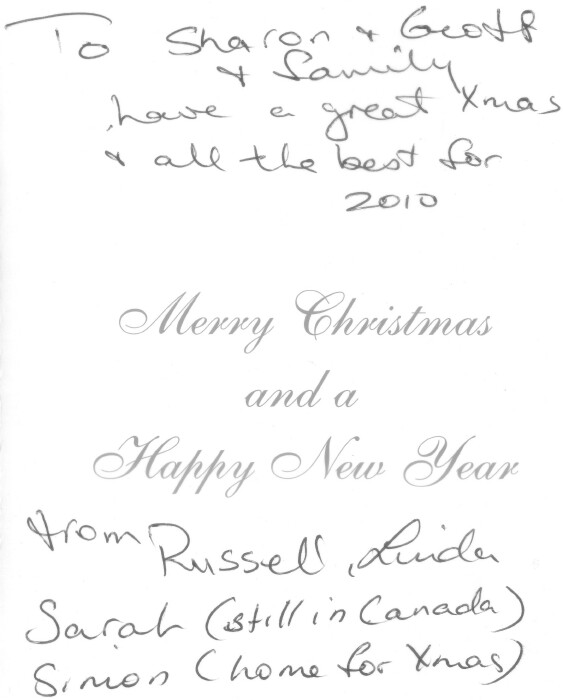 To Sharon & Geoff
& family
have a great Xmas
& all the best for
2010
Merry Christmas
and a
Happy New Year
from Russell, Linda
Sarah (still in Canada)
Simon (home for Xmas)